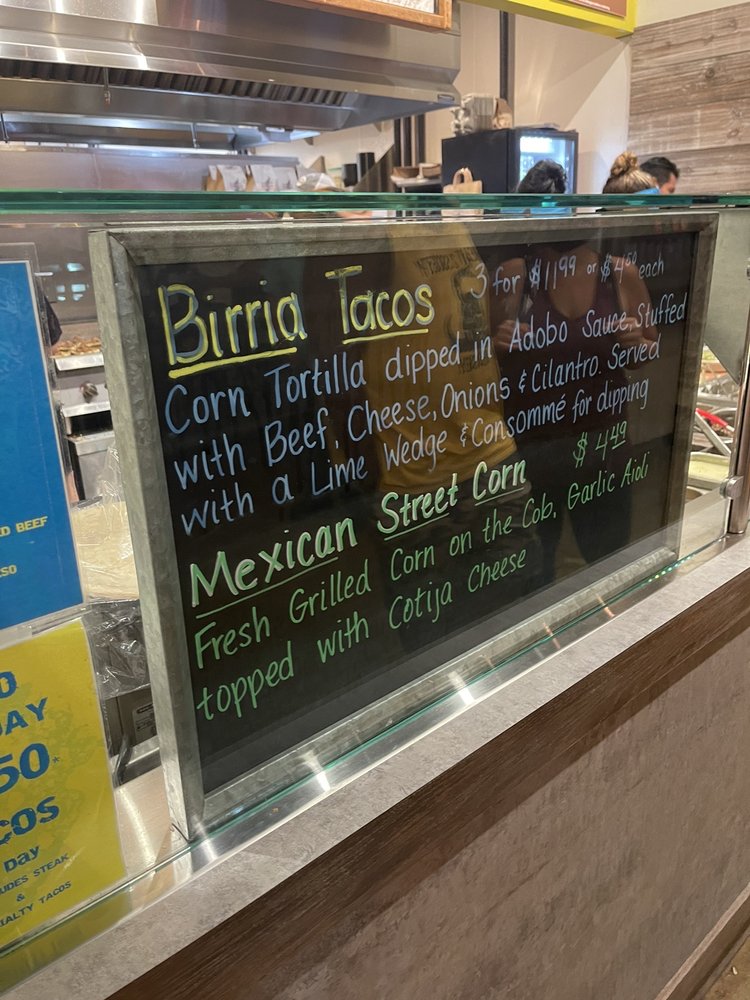 Birria Tacos 3 for $11.99 or $4.50 each
Corn Tortilla dipped in Adobo Sauce, Stuffed
with Beef, Cheese, Onions & Cilantro. Served
with a Lime Wedge & Consommé for dipping
Mexican Street Corn $4.49
Fresh Grilled Corn on the Cob, Garlic Aioli
topped with Cotija Cheese
D BEEF
SO
O
AY
50*
COS
Day
UDES STEAK
&
IALTY TACOS